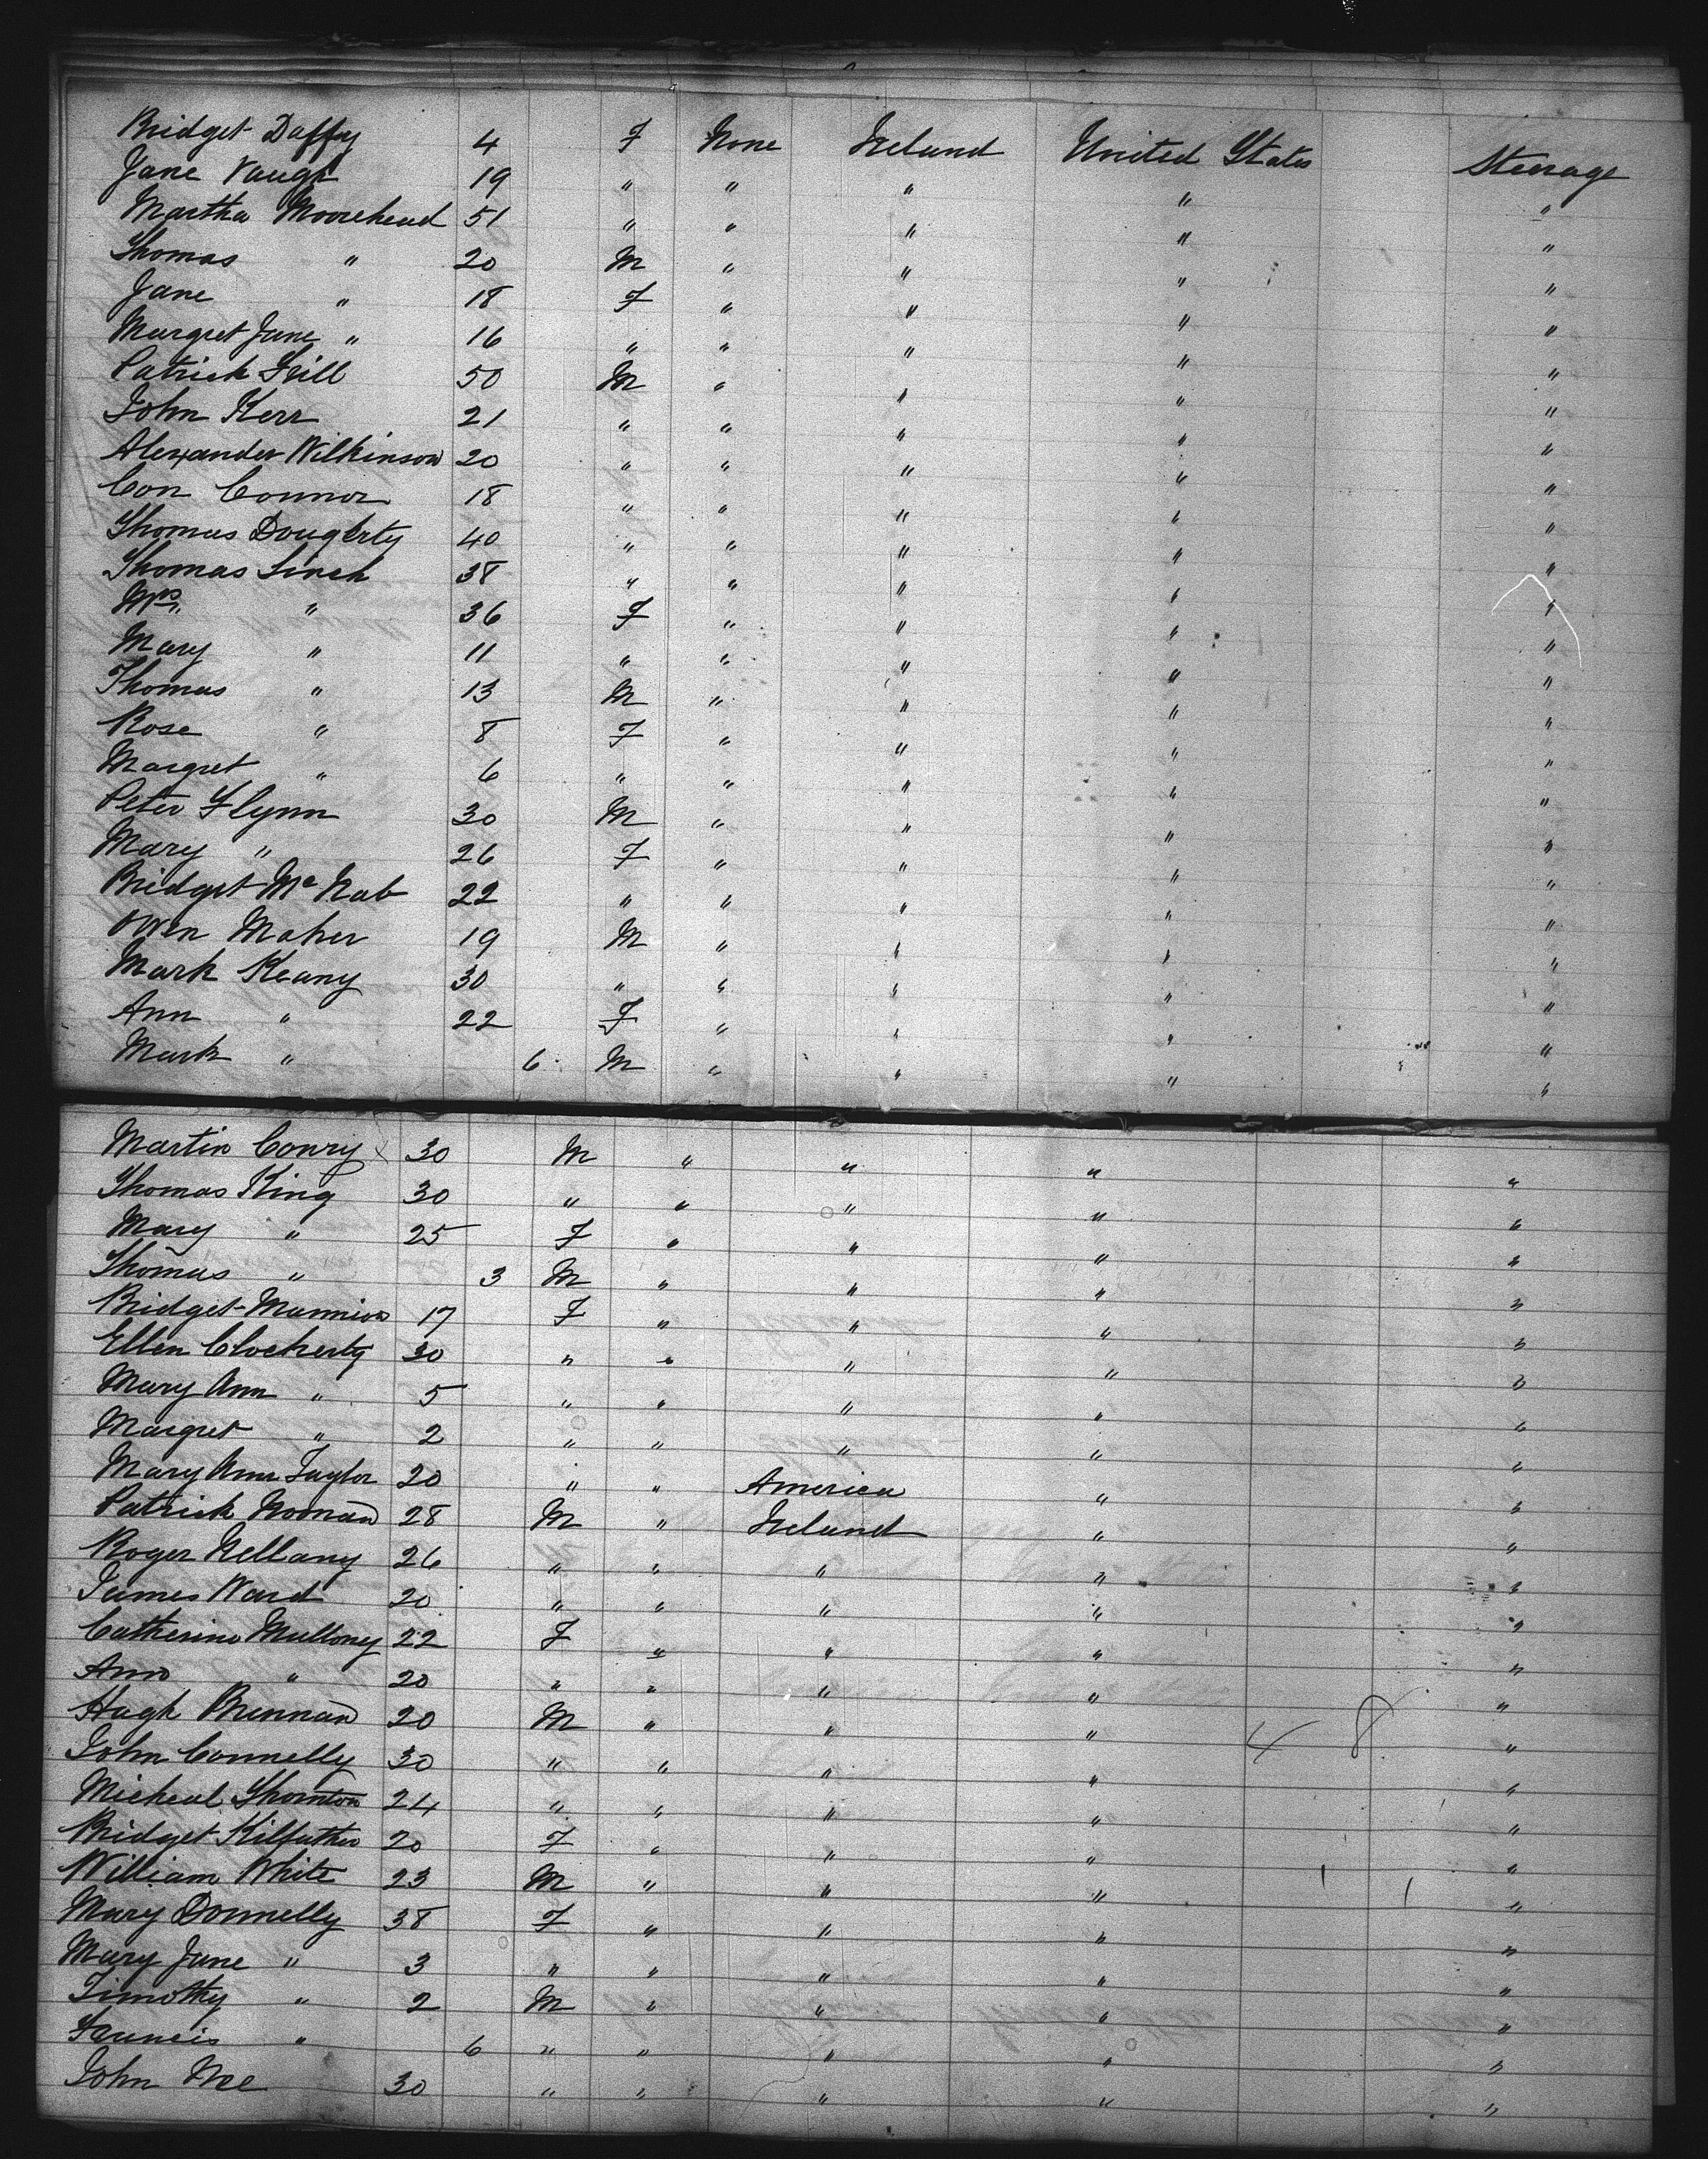 Bridget Daffy 4 F None Ireland United States Steerage
Jane Vaugh 19 " " " " "
Martha Moorehead 51 " " " " "
Thomas " 20 M " " " "
Jane " 18 F " " " "
Margret Jane " 16 " " " " "
Patrick 50 M " " " "
John Kerr 21 " " " " "
Alexander Wilkinson 20 " " " " "
Con Connor 18 " " " " "
Thomas Dougherty 40 " " " " "
Thomas Linch 38 " " " " "
Mrs " 36 F " " " "
Mary " 11 " " " " "
Thomas " 13 M " " " "
Rose " 8 F " " " "
Margret " 6 " " " " "
Peter Flynn 30 M " " " "
Mary " 26 F " " " "
Bridget McNab 22 " " " " "
Owen Maher 19 M " " " "
Mark Keany 30 " " " " "
Ann " 22 F " " " "
Mark " 6 M " " " "
Martin Conry 30 M " " " "
Thomas King 30 " " " " "
Mary " 25 F " " " "
Thomas " 3 M " " " "
Bridget Mannion 17 F " " " "
Ellen Clocherty 30 " " " " "
Mary Ann " 5 " " " " "
Margret " 2 " " " " "
Mary Ann Taylor 20 " " America " "
Patrick Noonan 28 M " Ireland " "
Roger Nellany 26 " " " " "
James Ward 20 " " " " "
Catherine Mullony 22 F " " " "
Ann " 20 " " " " "
Hugh Brennan 20 M " " " 4 8 "
John Connelly 30 " " " " "
Micheal Thornton 24 " " " " "
Bridget Kilfather 20 F " " " "
William White 23 M " " " 1 1 "
Mary Donnelly 38 F " " " "
Mary Jane " 3 " " " " "
Timothy " 2 M " " " "
Francis " 6 " " " " "
John Nee 30 " " " " "